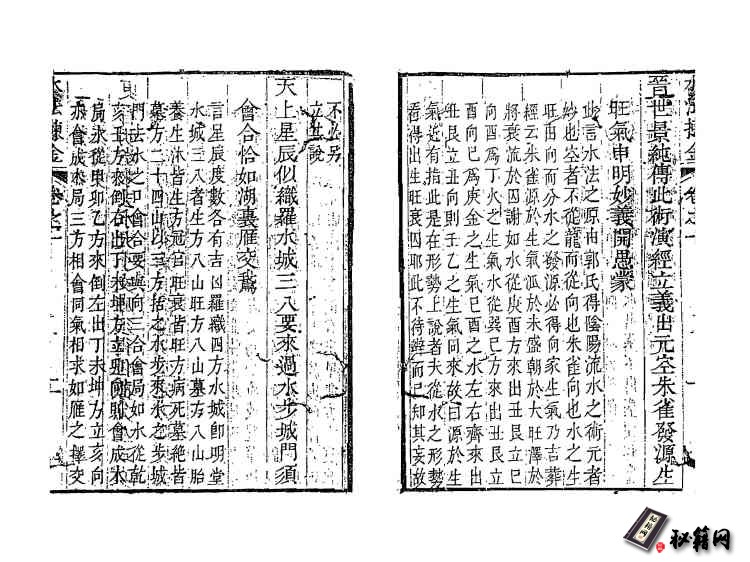 晉世景純傳此術演經立義出元空朱雀發源生
旺氣申明妙義開愚蒙
此言水法之原由郭氏得陰陽流水之術元者
紗也空者不從龍而從向也朱雀向也水之生
旺由向而分水之發源必得向家生氣乃吉葬
經云朱雀源於生氣派於未盛朝於大旺澤於
將衰流於囚謝如水從庚酉方來出丑艮立巳
向酉為丁火之生氣水從巽巳方來出丑艮立
酉向巳為庚金之生氣巳酉之水左右齊來出
丑艮立丑向則壬乙之生氣同來故曰源於生
氣近有指此是在形勢上說者夫從水之形勢
看得出生旺衰囚耶此不待辨而已知其妄故
水法摘金 卷之一
不必另
立丑說
天上星辰似織羅水城三八要來過水步城門須
會合恰如湖裏雁交鵞
言星辰度數各有吉凶羅織四方水城卽明堂
水城三八者生方八山旺方八山墓方八山胎
養生沐皆生方冠官旺衰皆旺方病死墓絶皆
墓方二十四山以三方括之水步來水之步城
門去水之口會合要與向三合會局如水從乾
亥壬方來倒右出丁未坤方立
向則會成木
局水從甲卯乙方來倒左出丁未坤方立亥向
亦會成木局三方相會同氣相求如雁之擇交
水法摘金 卷之一
秘籍网